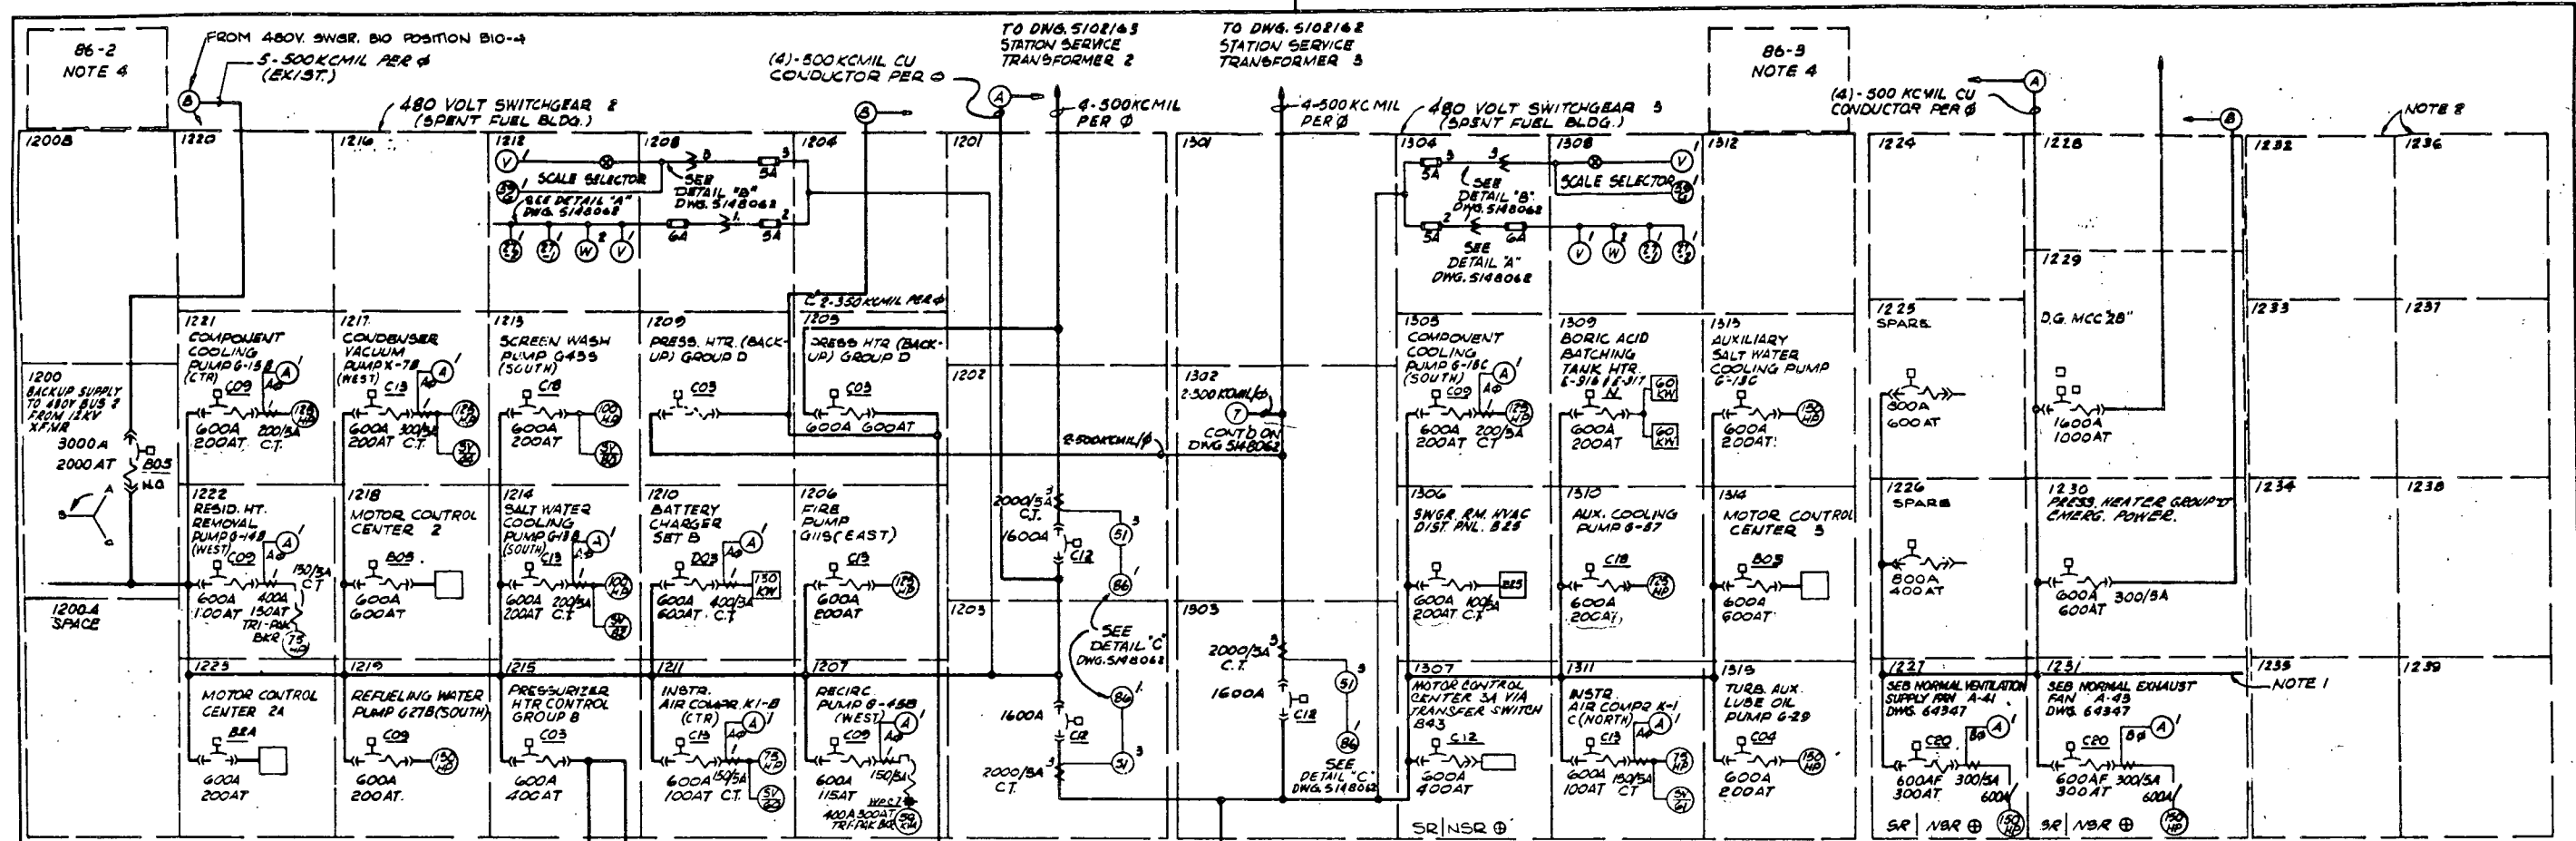 86-2
NOTE 4
FROM 480V. SWGR. B10 POSITION B10-4
5-500 KCMIL PER Ø
(EXIST.)
B
480 VOLT SWITCHGEAR 2
(SPENT FUEL BLDG.)
(4)-500 KCMIL CU
CONDUCTOR PER Ø
B
A
TO DWG. 5102163
STATION SERVICE
TRANSFORMER 2
4-500KCMIL
PER Ø
TO DWG. 5102162
STATION SERVICE
TRANSFORMER 3
4-500KCMIL
PER Ø
480 VOLT SWITCHGEAR 3
(SPENT FUEL BLDG.)
86-3
NOTE 4
(4)-500 KCMIL CU
CONDUCTOR PER Ø
A
B
NOTE 2
1200B
1220
1216
1212
V 1
SCALE SELECTOR
SEE DETAIL "A"
DWG. 5148062
27-2 1
27-1 1
W 2
V 1
1208
3
3
5A
SEE
DETAIL "B"
DWG. 5148062
6A
1
2
5A
1204
1201
1301
1304
3
3
5A
SEE
DETAIL "B"
DWG. 5148062
2
5A
1
6A
SEE
DETAIL "A"
DWG. 5148062
1308
V 1
SCALE SELECTOR
V 1
W 2
27-1 1
27-2 1
1312
1224
1228
1232
1236
1200
BACKUP SUPPLY
TO 480V BUS 2
FROM 12KV
XFMR
3000A
2000AT
B03
N.O
A
B
C
1200A
SPACE
1221
COMPONENT
COOLING
PUMP G-15B
(CTR)
C09
A 1
AØ
125 HP
600A
200AT
200/5A
C.T.
1217
CONDENSER
VACUUM
PUMP K-7B
(WEST)
C13
A 1
125 HP
600A
200AT
300/5A
C.T.
1213
SCREEN WASH
PUMP G45S
(SOUTH)
C18
100 HP
600A
200AT
1209
PRESS. HTR. (BACK-
UP) GROUP D
C03
C 2-350KCMIL PER Ø
1205
PRESS HTR (BACK-
UP) GROUP D
C03
600A 600AT
1202
1302
2-500KCMIL/Ø
7
CONT'D ON
DWG 5148062
2-500KCMIL/Ø
1305
COMPONENT
COOLING
PUMP G-15C
(SOUTH)
C09
A 1
AØ
125 HP
600A
200AT
200/5A
CT
1309
BORIC ACID
BATCHING
TANK HTR.
E-916 & E-917
N
60 KW
60 KW
600A
200AT
1313
AUXILIARY
SALT WATER
COOLING PUMP
G-13C
150 HP
600A
200AT
1225
SPARE
800A
600AT
1229
D.G. MCC "2B"
1600A
1000AT
1233
1237
1222
RESID. HT.
REMOVAL
PUMP G-14B
(WEST)
C09
A 1
AØ
150/5A
CT
600A
100AT
400A
150AT
TRI-PAK
BKR
75 HP
1218
MOTOR CONTROL
CENTER 2
B03
600A
600AT
1214
SALT WATER
COOLING
PUMP G-13B
(SOUTH)
C13
A 1
AØ
100 HP
600A
200AT
200/5A
C.T.
1210
BATTERY
CHARGER
SET B
D03
A 1
AØ
130 KW
600A
600AT
400/5A
C.T.
1206
FIRE
PUMP
G11S(EAST)
C13
125 HP
600A
200AT
2000/5A
C.T.
3
1600A
C12
51 3
86 1
1203
SEE
DETAIL "C"
DWG. 5148062
86 1
51 3
1600A
C12
2000/5A
CT
3
1303
2000/5A
C.T.
3
1600A
C12
51 3
86 1
SEE
DETAIL "C"
DWG. 5148062
1306
SWGR. RM. HVAC
DIST. PNL. B25
B25
600A
200AT
100/5A
C.T.
1310
AUX. COOLING
PUMP G-87
C18
125 HP
600A
200AT
1314
MOTOR CONTROL
CENTER 3
B03
600A
600AT
1226
SPARE
800A
400AT
1230
PRESS. HEATER GROUP D
EMERG. POWER.
600A
600AT
300/5A
1234
1238
1223
MOTOR CONTROL
CENTER 2A
B2A
600A
200AT
1219
REFUELING WATER
PUMP G27B(SOUTH)
C09
150 HP
600A
200AT.
1215
PRESSURIZER
HTR CONTROL
GROUP B
C03
600A
400AT
1211
INSTR.
AIR COMPR. K1-B
(CTR)
C13
A 1
AØ
75 HP
600A
100AT
150/5A
C.T.
1207
RECIRC.
PUMP G-45B
(WEST)
C09
A 1
AØ
600A
115AT
150/5A
400A 300AT
TRI-PAK BKR
1307
MOTOR CONTROL
CENTER 3A VIA
TRANSFER SWITCH
B43
C12
600A
400AT
SR|NSR ⊕
1311
INSTR.
AIR COMPR K-1
C (NORTH)
C13
A 1
AØ
75 HP
600A
100AT
150/5A
CT
1315
TURB. AUX.
LUBE OIL
PUMP G-29
C04
150 HP
600A
200AT
1227
SEB NORMAL VENTILATION
SUPPLY FAN A-41
DWG. 64347
A 1
BØ
C20
600AF
300AT
300/5A
600A
150 HP
SR | NSR ⊕
1231
SEB NORMAL EXHAUST
FAN A-43
DWG. 64347
A 1
BØ
C20
600AF
300AT
300/5A
600A
150 HP
SR | NSR ⊕
1235
NOTE 1
1239